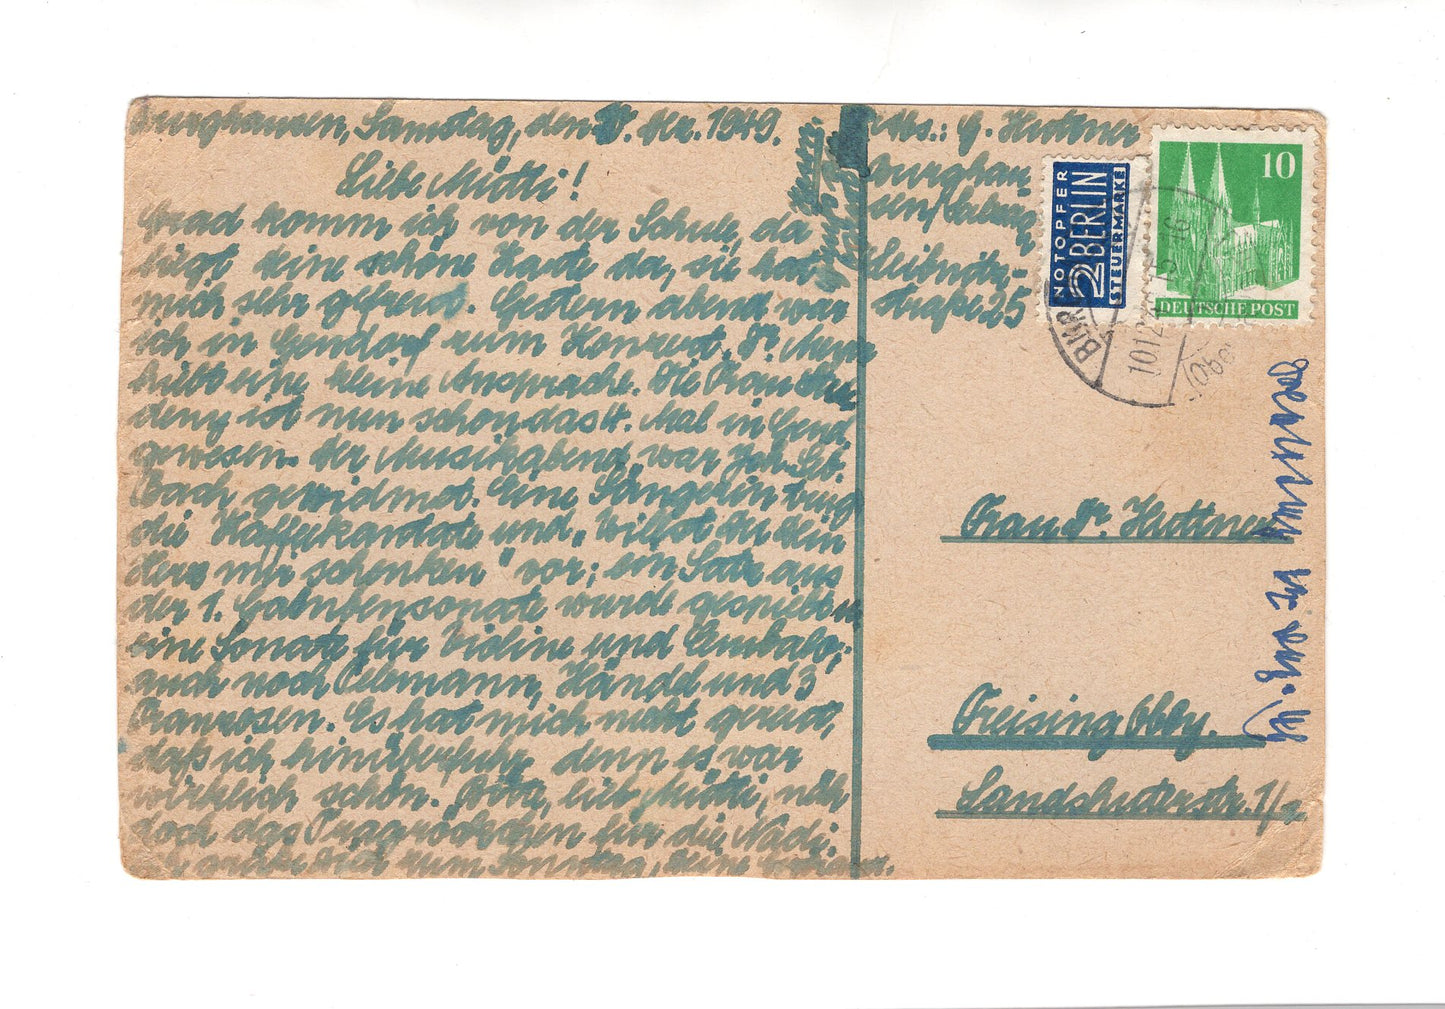 Burghausen, Samstag, den Dez. 1949.
Liebe Mutti!
Grad komm ich von der Schule, da
liegt deine schöne Karte da, sie hat
mich sehr gefreut. Gestern abend war
ich in Gendorf zum Konzert. Dr. Mayer
hielt eine kleine Ansprache. Die Frau
ist nun schon das 4. Mal in Gend.
gewesen. Der Musikabend war Joh. Seb.
Bach gewidmet. Eine Sängerin trug
die Kaffeekantate und „Willst du dein
Herz mir schenken" vor; ein Satz aus
der 1. Gambensonate wurde gespielt u.
eine Sonate für Violine und Cembalo,
auch noch Telemann, Händel und 3
Franzosen. Es hat mich nicht gereut,
daß ich hinüberfuhr, denn es war
wirklich schön. Bitte, liebe Mutti, näh
doch das Tragröckchen für die Nädi.
zum Sonntag, deine
Abs.: G. Huttner
Burghau
sen/Salzach
Leibnitz-
straße 25
NOTOPFER
2 BERLIN
STEUERMARKE
10
DEUTSCHE POST
10.12.49
(Obb.)
Frau Dr. Huttner
Freising Obby.
Landshuterstr. 1/2